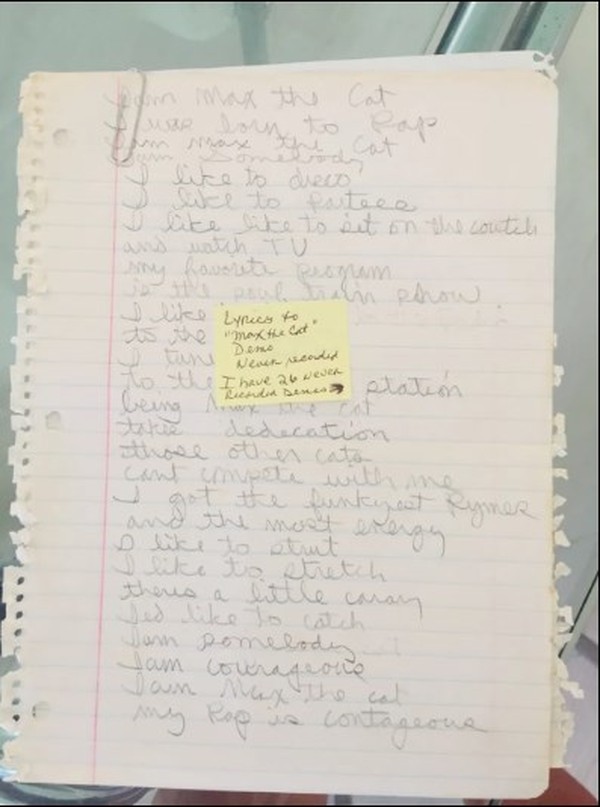 I am Max the Cat
I was born to Rap
I am max the Cat
I am Somebody
I like to disco
I like to partees
I like like to set on the coutch
and watch TV
my favorite program
is the soul train show
I like
to the
I tune
to the station
being Max the cat
takes dedecation
those other cats
cant compete with me
I got the funkyest Rymes
and the most energy
I like to strut
I like to stretch
theres a little canary
Ied like to catch
I am somebody
I am courageous
I am Max the cat
my Rap is contageous
Lyrics to
"Max the Cat"
Demo
Never recorded
I have 26 never
Recorded Demos